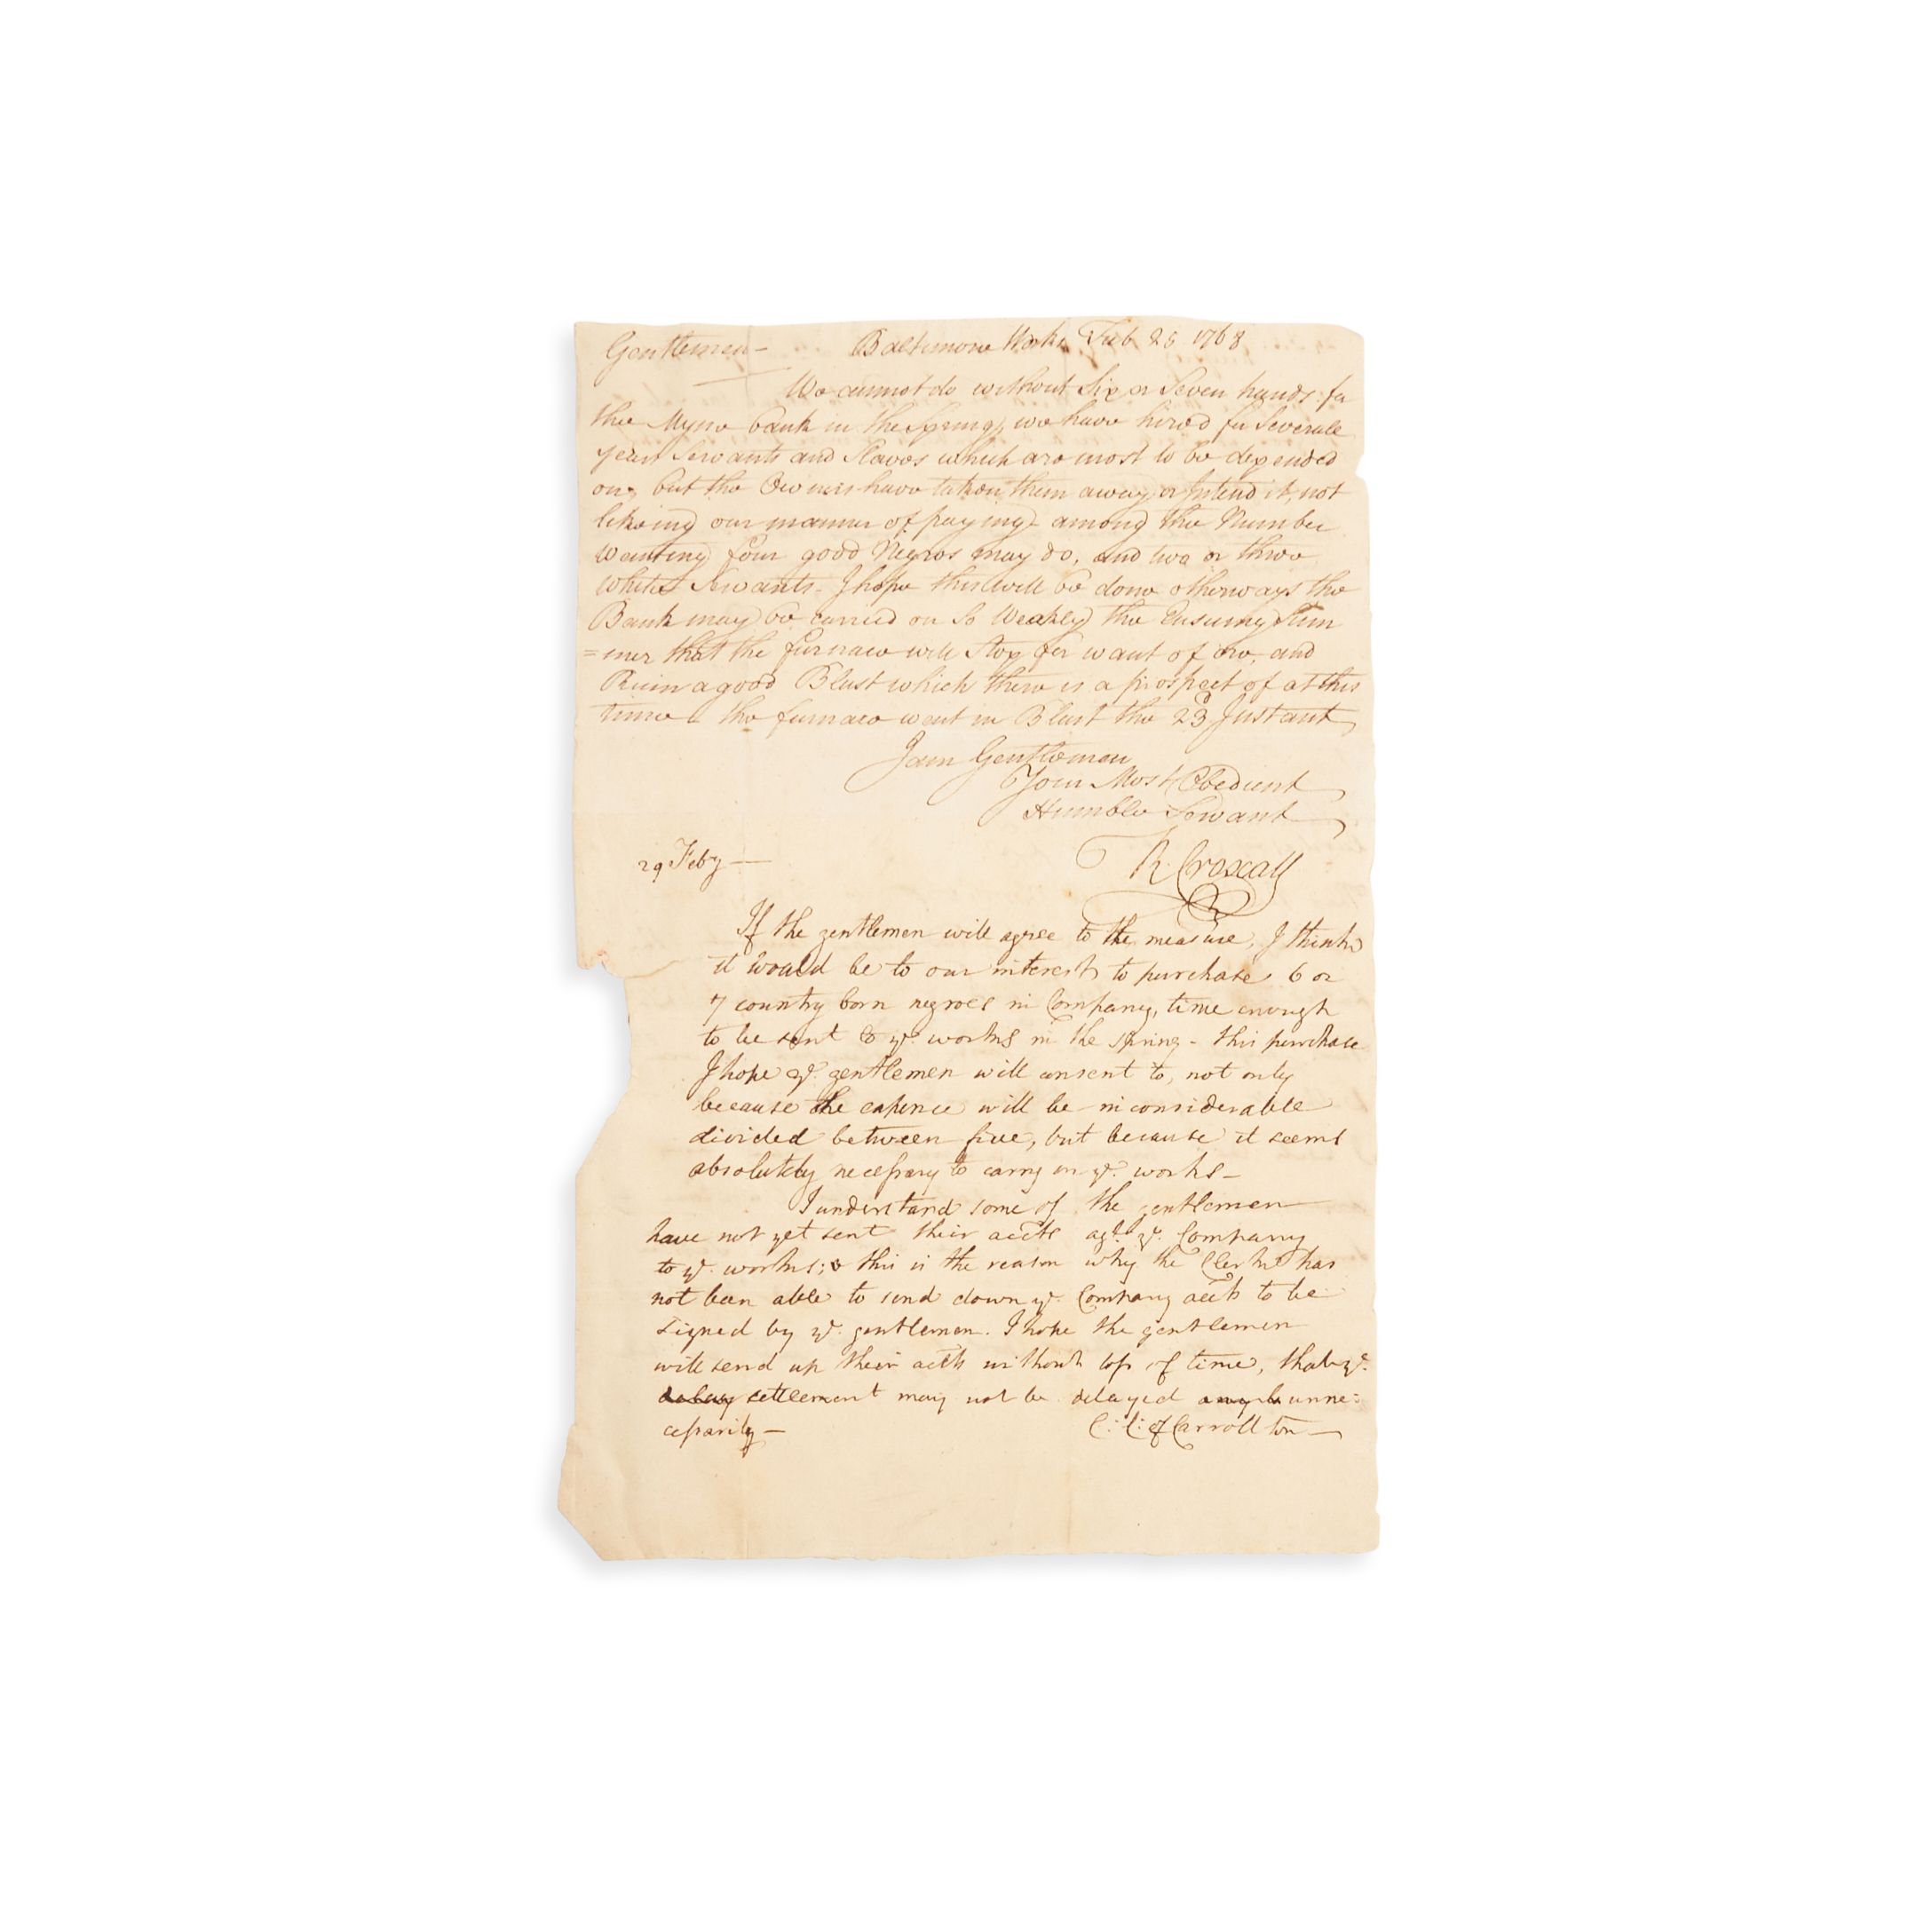 Gentlemen - Baltimore Works Feb 25 1768
We cannot do without Six or Seven hands for
thee Myne bank in the Spring, we have hired for Severall
years Servants and Slaves which are most to be depended
on, but the Owners have taken them away or Intend it, not
likeing our manner of paying among the Number
Wanting four good Negros may do, and two or three
White Servants. I hope this will be done otherways the
Bank may be carried on So Weakly the Ensuing Sum
=mer that the furnace will Stop for want of ore, and
Ruin a good Blast which there is a prospect of at this
time the furnace went in Blast the 23 Instant
I am Gentlemen
Your Most Obedient
Humble Servant
R Croxall
29 Feby —
If the gentlemen will agree to the measure, I think
it would be to our interest to purchase 6 or
7 country born negroes in Company, time enough
to be sent to ye. works in the spring - this purchase
I hope ye. gentlemen will consent to, not only
because the expence will be inconsiderable
divided between five, but because it seems
absolutely necessary to carry on ye. works -
I understand some of the gentlemen
have not yet sent their accts agt. ye. Company
to ye. works; & this is the reason why the Clerk has
not been able to send down ye. Company accts to be
signed by ye. gentlemen. I hope the gentlemen
will send up their accts without loss of time, that ye.
delay settlement may not be delayed unne=
cessarily —
C: C: of Carrollton —